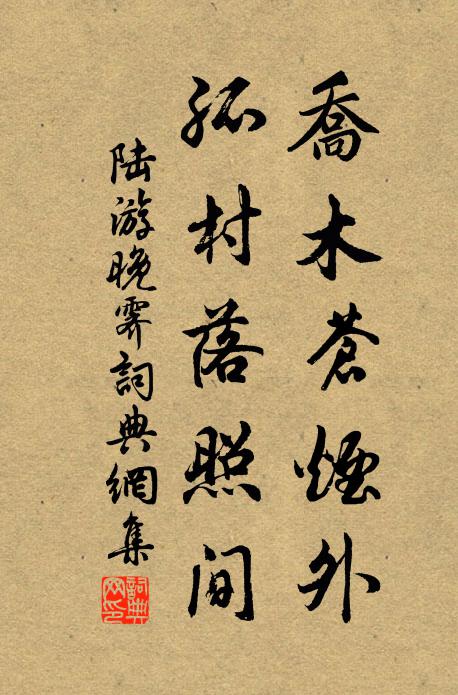 喬木蒼煙外
孤村落照间
陆游晚霽詞典網集
詞典網印